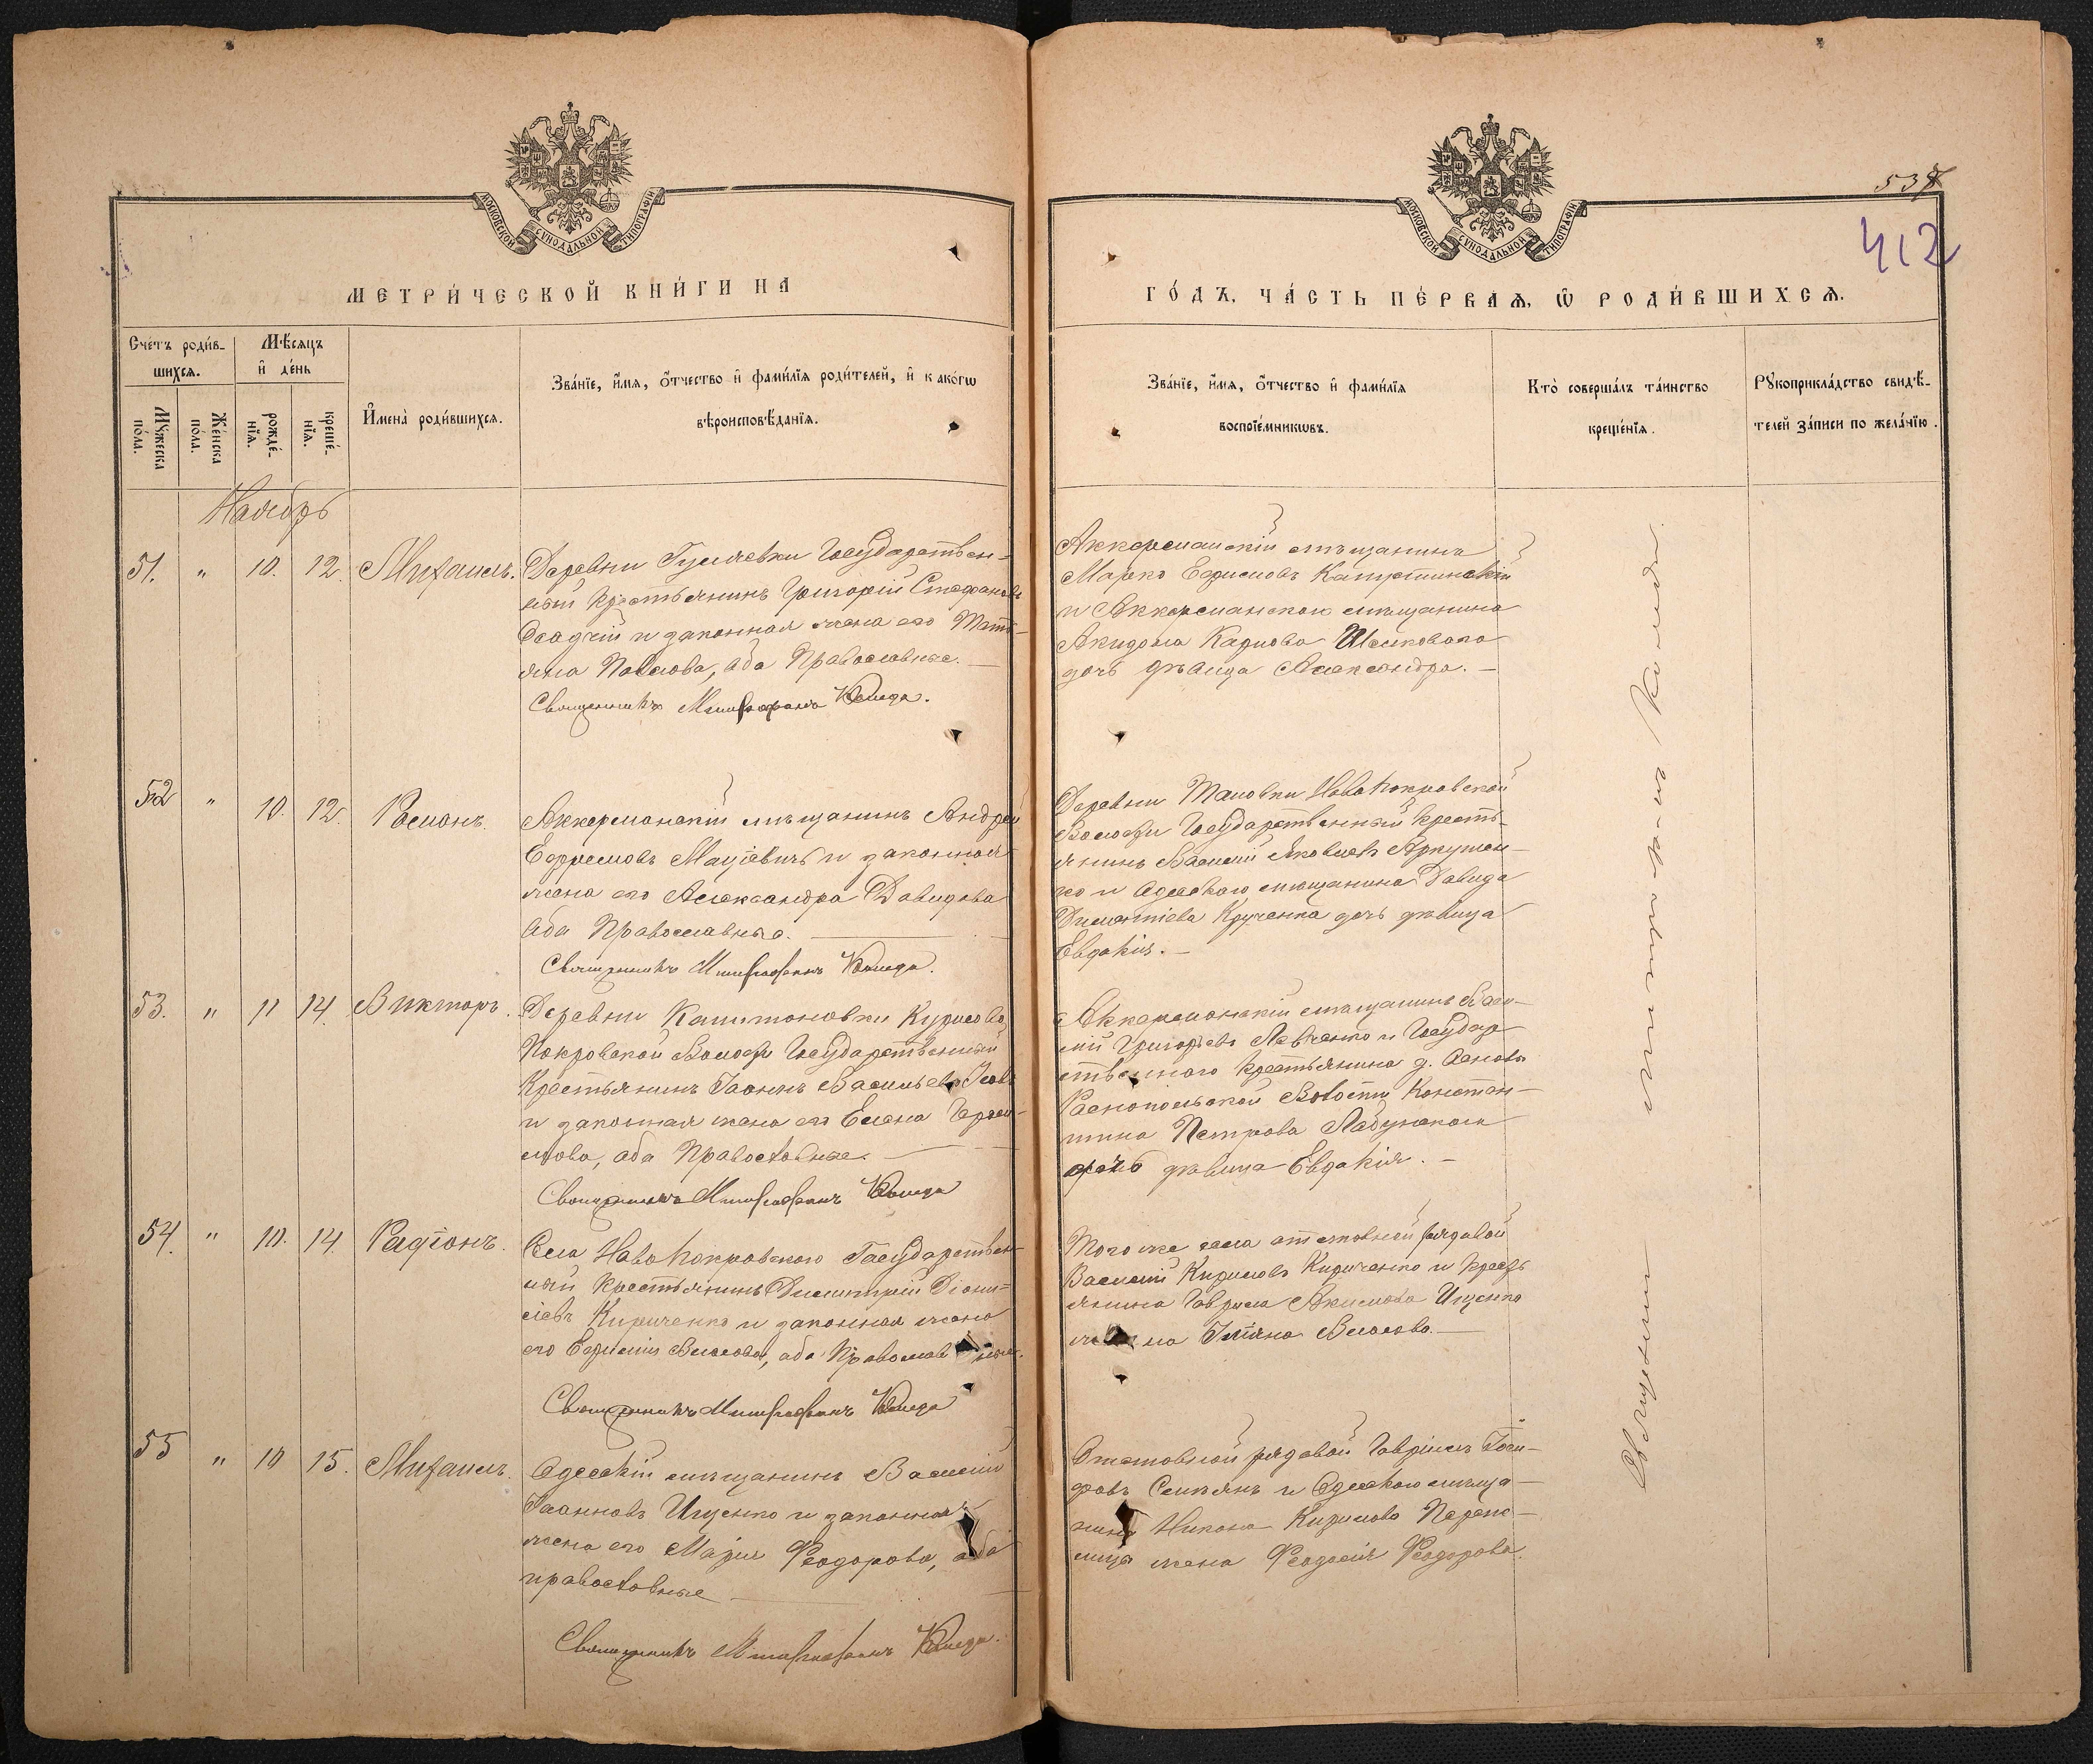 МОСКОВСКОЙ СѴНОДАЛЬНОЙ ТИПОГРАФІИ
МЕТРИ́ЧЕСКОЙ КНИ́ГИ НА
Счетъ роди́в-
шихсѧ.
Мѣ́сѧцъ
и҆ де́нь
Мꙋ́жеска
по́ла.
Же́нска
по́ла.
рожде́-
нїѧ.
креще́-
нїѧ.
И҆мена̀ роди́вшихсѧ.
Зва́нїе, и҆́мѧ, ѻ҆́тчество и҆ фами́лїѧ роди́телей, и҆ како́гѡ
вѣроисповѣ́данїѧ.
Ноябрь
51. " 10. 12. Михаилъ.
Деревни Гуляевки Государствен-
ный крестьянинъ Григорій Стефановъ
Осадчій и законная жена его Тать-
яна Павлова, оба Православные.
Священникъ Митрофанъ Коляда.
52 " 10. 12. Романъ.
Аккерманскій мѣщанинъ Андрей
Ефремовъ Мацiевичъ и законная
жена его Александра Давидова
оба Православные.
Священникъ Митрофанъ Коляда.
53. " 11 14. Викторъ.
Деревни Капитоновки Курисово
Покровской Волости Государственный
Крестьянинъ Іоаннъ Васильевъ
и законная жена его Елена Гераси-
мова, оба Православные.
Священникъ Митрофанъ Коляда
54. " 10. 14. Радіонъ.
Села Ново Покровского Государствен-
ный Крестьянинъ Димитрій Діони-
сіевъ Кириченко и законная жена
его Евфимія Власова, оба Православные.
Священникъ Митрофанъ Коляда
55 " 10 15. Михаилъ.
Одесскій мѣщанинъ Василій
Іоанновъ Ищенко и законная
жена его Марія Ѳеодорова, оба
православные
Священникъ Митрофанъ Коляда.
538
412
МОСКОВСКОЙ СѴНОДАЛЬНОЙ ТИПОГРАФІИ
ГО́ДЪ, ЧА́СТЬ ПЕ́РВАѦ, Ѡ҆ РОДИ́ВШИХСѦ.
Зва́нїе, и҆́мѧ, ѻ҆́тчество и҆ фами́лїѧ
воспрїе́мникѡвъ.
Кто̀ соверша́лъ та́инство
креще́нїѧ.
Рꙋкоприкла́дство свидѣ́-
телей за́писи по жела́нїю.
Аккерманскій мѣщанинъ
Марко Ефремовъ Капустинскій
и Аккерманского мѣщанина
Карпова
дочь дѣвица Александра.
Деревни Ново Покровской
Волости Государственный кресть-
янинъ Василій Яковлевъ
и Одесского мѣщанина Давида
дочь дѣвица
Евдокія.
Аккерманскій мѣщанинъ Васи-
лій Григорьевъ Левченко и Государ
ственного Крестьянина д.
Волости Констан-
тина Петрова
дочь дѣвица Евдокія.
Того же села отставной рядовой
Василій Кириловъ Кириченко и крест
янина Гавріила Акимова Ищенко
жена Власова.
Отставной рядовой Гавріилъ
и Одесского мѣща
нина Никона Кирилова
жена Ѳеодосія Ѳеодорова.
Священникъ Митрофанъ Коляда.